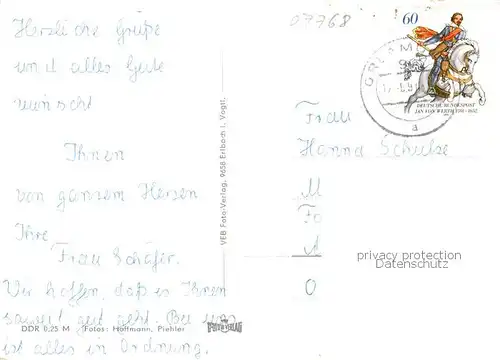 Herzliche Grüße
und alles Gute
wünscht
Ihnen
von ganzem Herzen
Ihre
Frau Schäfer.
Wir hoffen, daß es Ihnen
soweit gut geht. Bei uns
ist alles in Ordnung.
DDR 0,25 M Fotos: Hoffmann, Piehler
VEB Foto-Verlag, 9658 Erlbach i. Vogtl.
FOTO VERLAG
07768
60
DEUTSCHE BUNDESPOST
JAN VON WERTH 1591-1652
ORLAMÜ
a
Frau
Hanna Schulze
M
Fo
A
O
privacy protection
Datenschutz